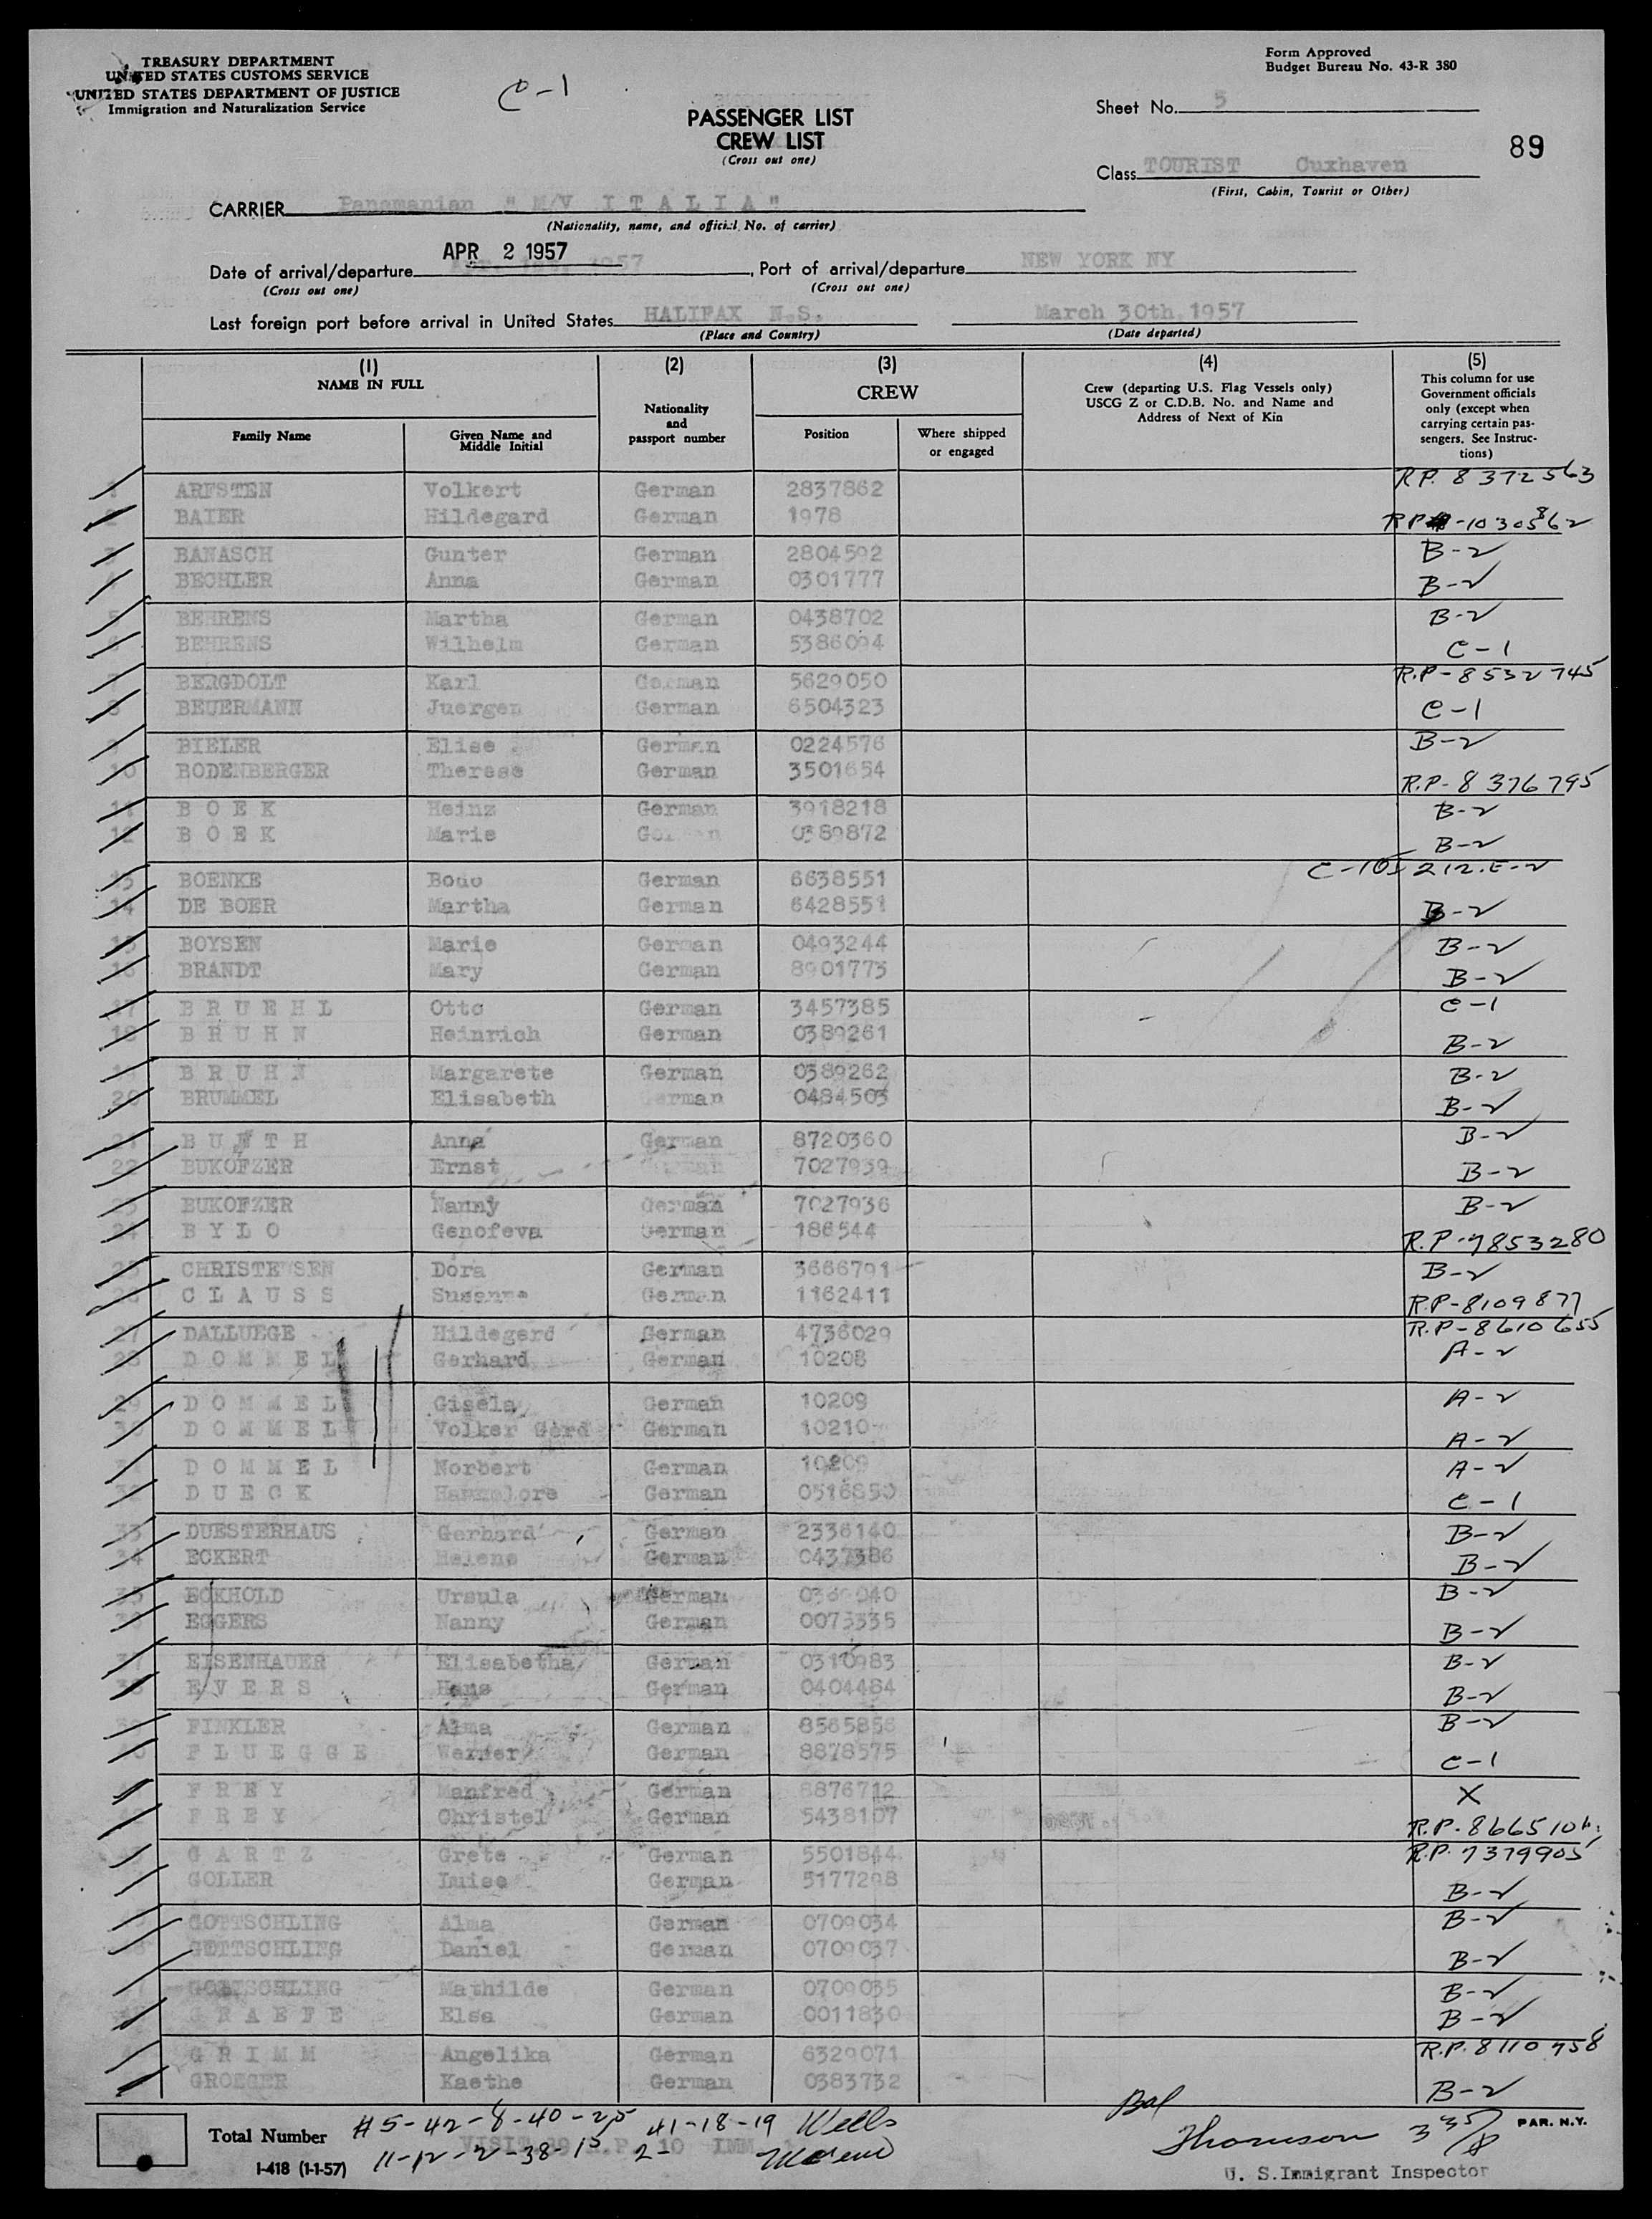 TREASURY DEPARTMENT
UNITED STATES CUSTOMS SERVICE
UNITED STATES DEPARTMENT OF JUSTICE
Immigration and Naturalization Service
C-1
Form Approved
Budget Bureau No. 43-R 380
PASSENGER LIST
CREW LIST
(Cross out one)
Sheet No. 5
89
Class TOURIST Cuxhaven
(First, Cabin, Tourist or Other)
CARRIER Panamanian " M/V I T A L I A "
(Nationality, name, and official No. of carrier)
APR 2 1957
Date of arrival/departure 1957, Port of arrival/departure NEW YORK NY
(Cross out one) (Cross out one)
Last foreign port before arrival in United States HALIFAX N.S. March 30th, 1957
(Place and Country) (Date departed)
(1) NAME IN FULL
Family Name
Given Name and Middle Initial
(2) Nationality and passport number
(3) CREW
Position
Where shipped or engaged
(4) Crew (departing U.S. Flag Vessels only) USCG Z or C.D.B. No. and Name and Address of Next of Kin
(5) This column for use Government officials only (except when carrying certain passengers. See Instructions)
1 ARFSTEN Volkert German 2837862 R.P. 8372563
2 BAIER Hildegard German 1978
3 BANASCH Gunter German 2804592 B-2
4 BECHLER Anna German 0301777 B-2
5 BEHRENS Martha German 0438702 B-2
6 BEHRENS Wilhelm German 5386094 C-1
7 BERGDOLT Karl German 5629050 R.P-8532745
8 BEUERMANN Juergen German 6504323 C-1
9 BIELER Elise German 0224576 B-2
10 BODENBERGER Therese German 3501654 R.P-8376795
11 B O E K Heinz German 3918218 B-2
12 B O E K Marie German 0389872 B-2
13 BOENKE Bodo German 6638551
14 DE BOER Martha German 6428551 B-2
15 BOYSEN Marie German 0493244 B-2
16 BRANDT Mary German 8901773 B-2
17 B R U E H L Otto German 3457385 C-1
18 B R U H N Heinrich German 0389261 B-2
19 B R U H N Margarete German 0389262 B-2
20 BRUMMEL Elisabeth German 0484503 B-2
21 B U N T H Anna German 8720360 B-2
22 BUKOFZER Ernst German 7027939 B-2
23 BUKOFZER Nanny German 7027936 B-2
24 B Y L O Genofeva German 186544 R.P-7853280
25 CHRISTENSEN Dora German 3666791 B-2
26 C L A U S S Susanne German 1162411 R.P-8109877
27 DALLUEGE Hildegerd German 4736029 R.P-8610655
28 D O M M E L Gerhard German 10208 A-2
29 D O M M E L Gisela German 10209 A-2
30 D O M M E L Volker Gerd German 10210 A-2
31 D O M M E L Norbert German 10209 A-2
32 D U E C K Hannelore German 0516850 C-1
33 DUESTERHAUS Gerhard German 2336140 B-2
34 ECKERT Helene German 0437386 B-2
35 ECKHOLD Ursula German B-2
36 EGGERS Nanny German 0073335 B-2
37 EISENHAUER Elisabetha German 0310983 B-2
38 E V E R S Hans German 0404484 B-2
39 FINKLER Alma German 8565856 B-2
40 F L U E G G E Werner German 8878575 C-1
F R E Y Manfred German 8876712 X
F R E Y Christel German 5438107
G A R T Z Grete German 5501844 R.P. 7379905
GOLLER Luise German 5177298 B-2
GOTTSCHLING Alma German 0709034 B-2
GOTTSCHLING Daniel German 0709037 B-2
GOTTSCHLING Mathilde German 0709035 B-2
G R A E F E Elsa German 0011830 B-2
G R I M M Angelika German 6329071 R.P. 8110758
GROEGER Kaethe German 0383732 B-2
Total Number #5-42-8-40-25 41-18-19 Wells
VISIT. 39 R.P. 10 IMM.
I-418 (1-1-57) 11-12-2-38-15 2-
Thomson
PAR. N.Y.
U. S. Immigrant Inspector